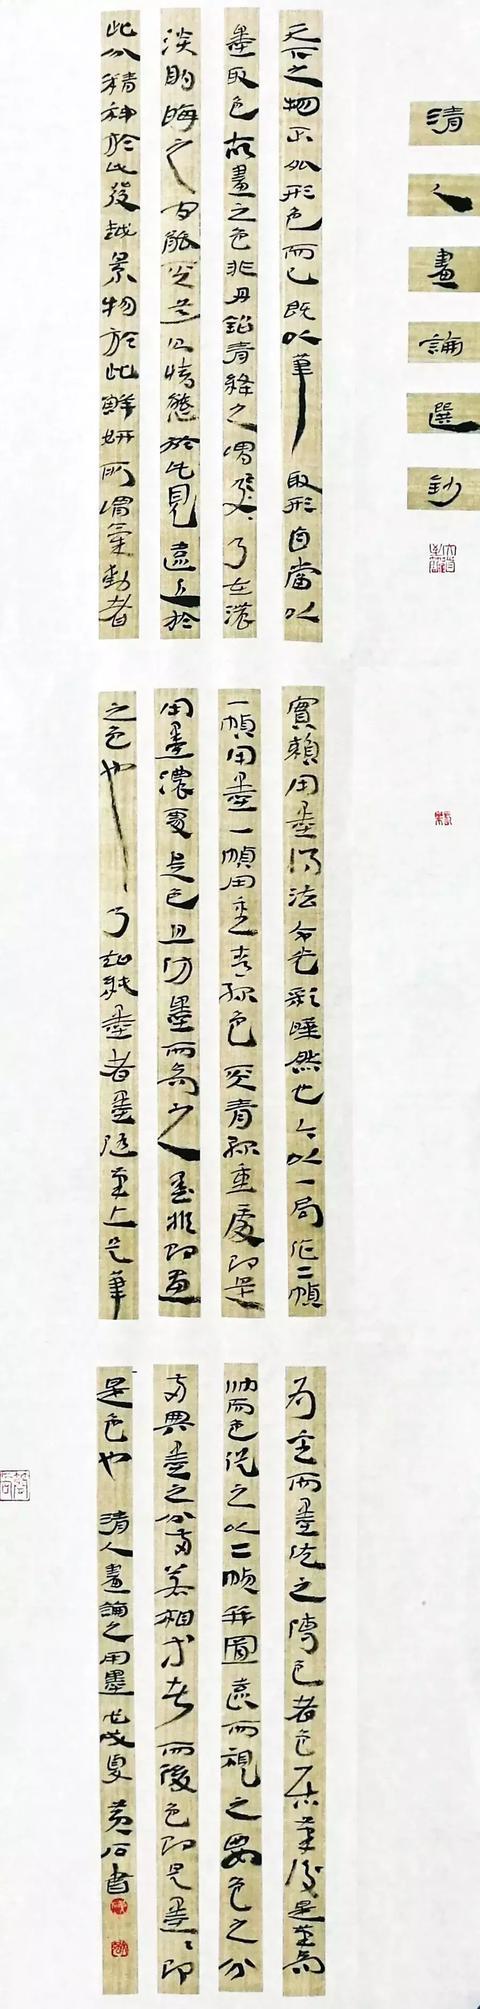 清人畫論選鈔
天下之物不外形色而已既以筆取形自當以
墨取色故畫之色非丹鉛青絳之謂乃在濃
淡明晦之間能得其道則情態於此見遠近於
此分精神於此發越景物於此鮮妍所謂氣動者
實賴用墨得法令光彩曄然也今以一局作二幀
一幀用墨一幀用重青綠色青綠重處即是
用墨濃處是色且仿墨而為之墨非即畫
之色也乃墨者墨隨筆上是筆
為主而墨從之傅色者色居筆後是筆為
帥而色從之以二幀并圖遠而視之色之分
墨之分若相而後色即是墨墨即
是色也 清人畫論之用墨戊戌夏 黃石書